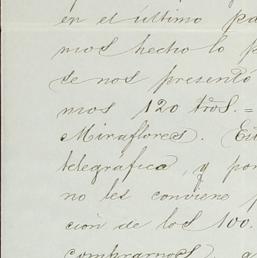 en el último pa
mos hecho lo p
se nos presentó
mos 120 tros. =
Miraflores. (Eu
telegráfica, y por
no les conviene
ción de los 100.
comprarnos, a